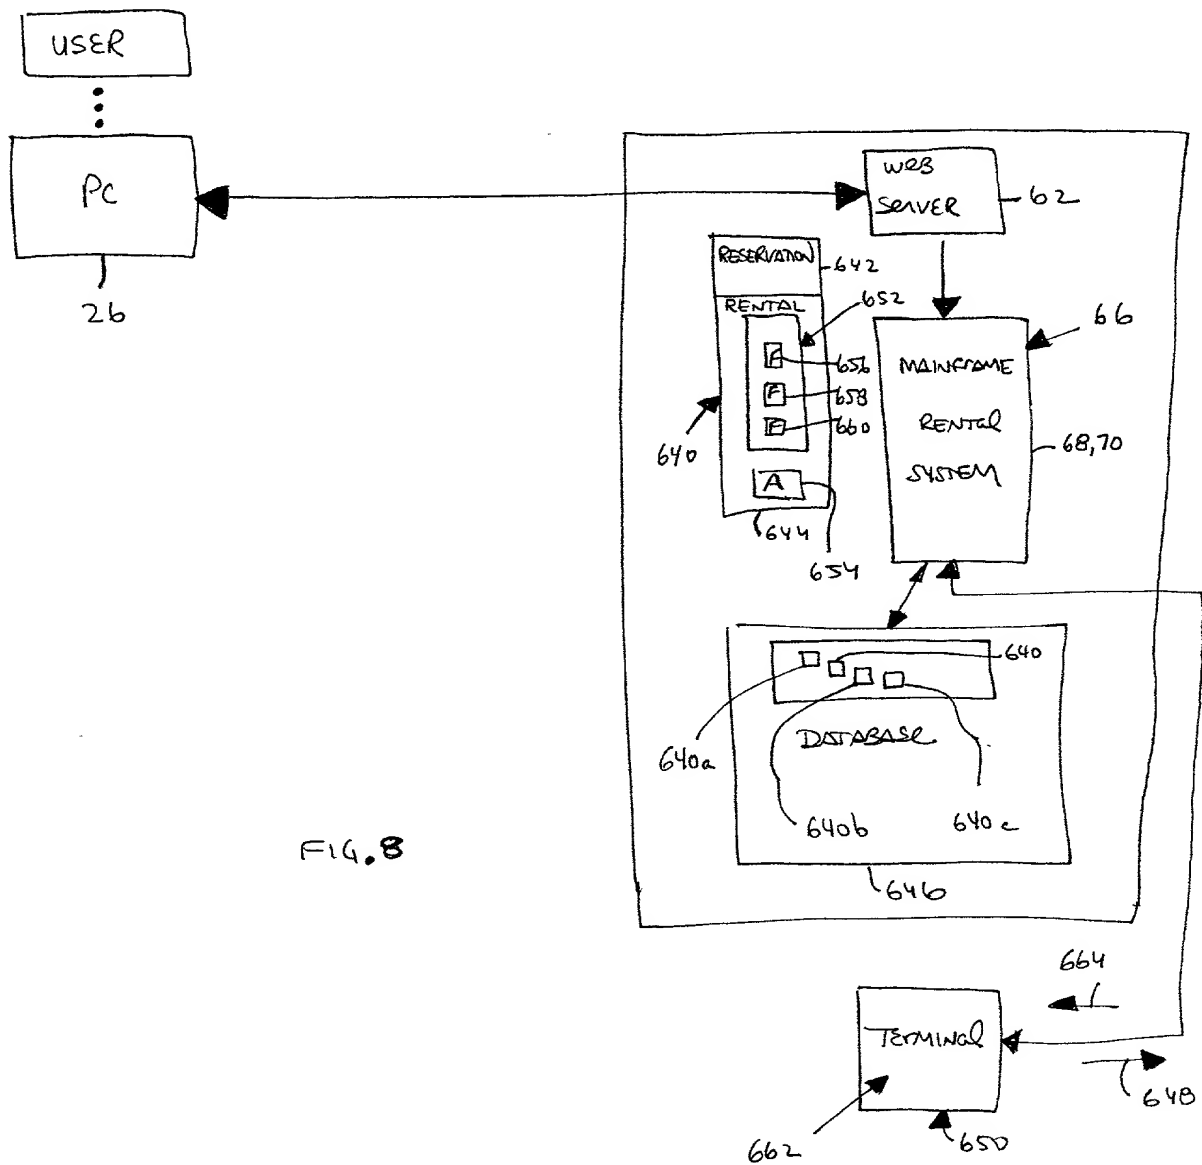 USER
PC
26
WEB
SERVER
62
RESERVATION
642
RENTAL
652
66
F
656
F
658
F
660
640
A
644
654
MAINFRAME
RENTAL
SYSTEM
68,70
640
DATABASE
640a
640b
640c
646
FIG.8
664
TERMINAL
648
662
650